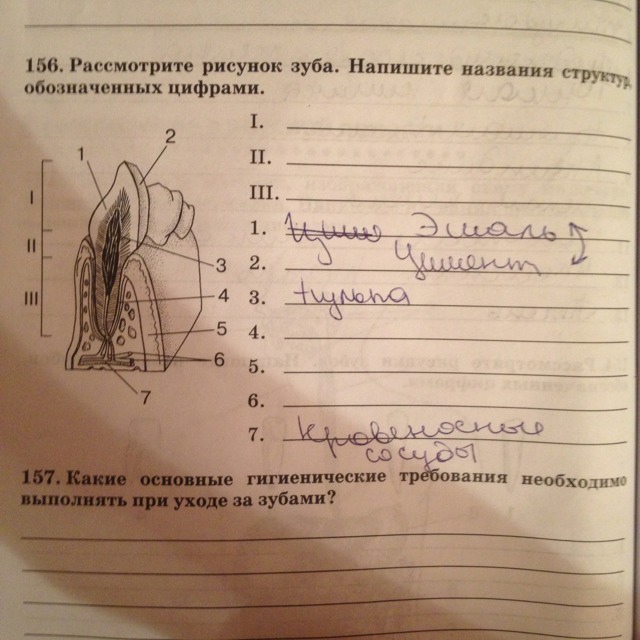 156. Рассмотрите рисунок зуба. Напишите названия структур,
обозначенных цифрами.
1
2
I
II
III
3
4
5
6
7
I.
II.
III.
1. Эмаль
2. Цемент
3. пульпа
4.
5.
6.
7. Кровеносные
сосуды
157. Какие основные гигиенические требования необходимо
выполнять при уходе за зубами?